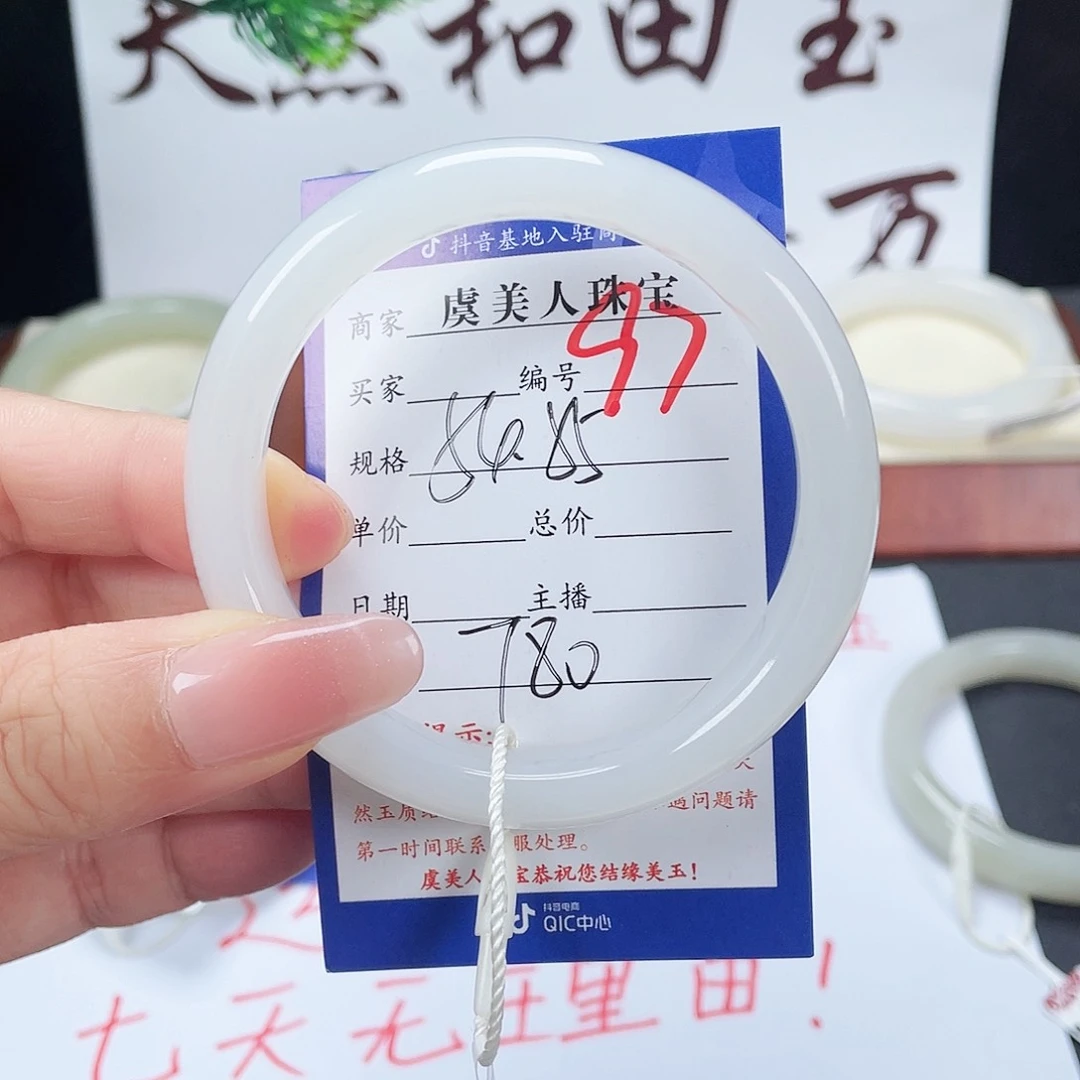 天然和田玉
万
抖音基地入驻商
商家 虞美人珠宝
买家 编号 97
规格 56.85
单价 总价
日期 主播
780
提示:
天
然玉质 遇问题请
第一时间联系 服处理。
虞美人 宝恭祝您结缘美玉!
抖音电商
QIC中心
七天无 理由!